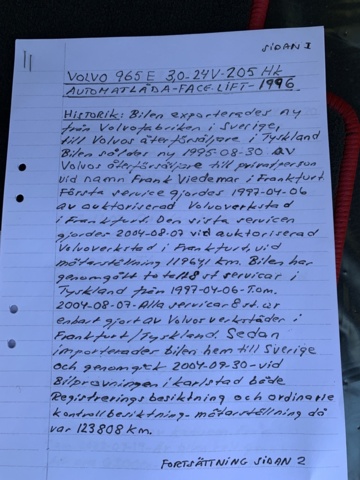 SIDAN 1
VOLVO 965E 3,0-24V-205 HK
AUTOMATLÅDA-FACE LIFT-1996
Historik: Bilen exporterades ny
från Volvofabriken i Sverige,
till Volvos återförsäljare i Tyskland
Bilen såldes ny 1995-08-30 AV
Volvos återförsäljare till privatperson
vid namn Frank Viedemar i Frankfurt
Första service gjordes 1997-04-06
av auktoriserad Volvoverkstad
i Frankfurt. Den sista servicen
gjordes 2004-08-07 vid auktoriserad
Volvoverkstad i Frankfurt, vid
mätarställning 119641 km. Bilen har
genomgått totalt 8 st servicar i
Tyskland från 1997-04-06-T.o.m.
2004-08-07-Alla servicar 8 st. är
enbart gjort av Volvos verkstäder i
Frankfurt/Tyskland. Sedan
importerades bilen hem till Sverige
och genomgick 2004-09-30-vid
Bilprovningen i karlstad både
Registrerings besiktning och ordinarie
kontrollbesiktning-mätarställning då
var 123808 km.
FORTSÄTTNING SIDAN 2